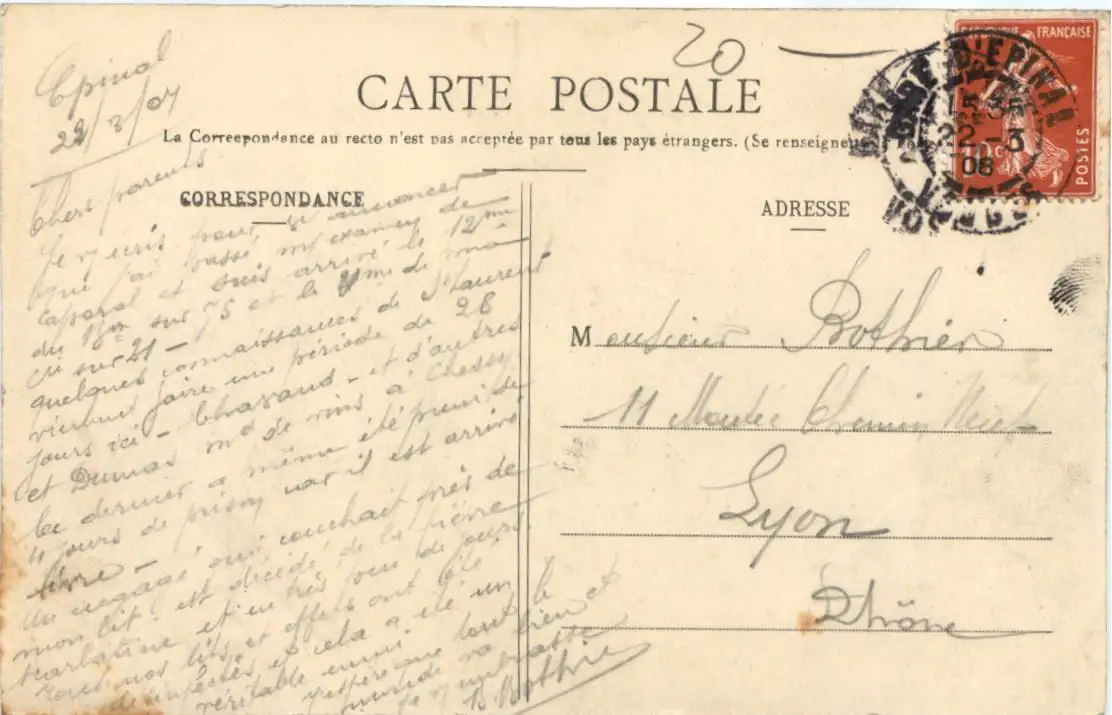 20
CARTE POSTALE
La Correspondance au recto n'est pas acceptée par tous les pays étrangers. (Se renseigne
RÉPUBLIQUE FRANÇAISE
POSTES
10 c
GARE D'EPINAL
35
22 - 3
08
VOSGES
Epinal
22/3/07
CORRESPONDANCE
Chers parents
Je vs écris pour vs annoncer
que j'ai passé mon examen de
caporal et suis arrivé le 12me
du sur 75 et le me de ma
Cie sur 21 -
quelques connaissances de St Laurent
viennent faire une période de 28
jours ici - Chazaud - et d'autres
et Dumas md de vins à Chessy
Ce dernier a même été puni de
4 jours de prison car il est arrivé
ivre -
Un engagé qui couchait près de
mon lit est décédé de la fièvre
scarlatine et en très peu de jours
tous nos lits et effets ont été
désinfectés et cela a été un
véritable ennui
J'espère que tout le
monde va bien et
je vs embrasse
B. Bothier
ADRESSE
Monsieur Bothier
11 Montée Chemin Neuf
Lyon
Rhône